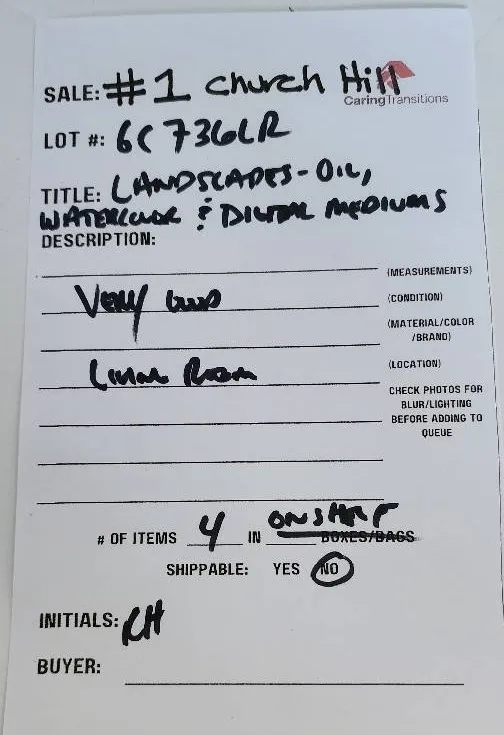 SALE: #1 Church Hill
CaringTransitions
LOT #: 6C736LR
TITLE: LANDSCAPES - OIL,
WATERCOLOR & DIGITAL MEDIUMS
DESCRIPTION:
(MEASUREMENTS)
Very Good (CONDITION)
(MATERIAL/COLOR
/BRAND)
Living Room (LOCATION)
CHECK PHOTOS FOR
BLUR/LIGHTING
BEFORE ADDING TO
QUEUE
# OF ITEMS 4 IN BOXES/BAGS
SHIPPABLE: YES NO
INITIALS: RH
BUYER: